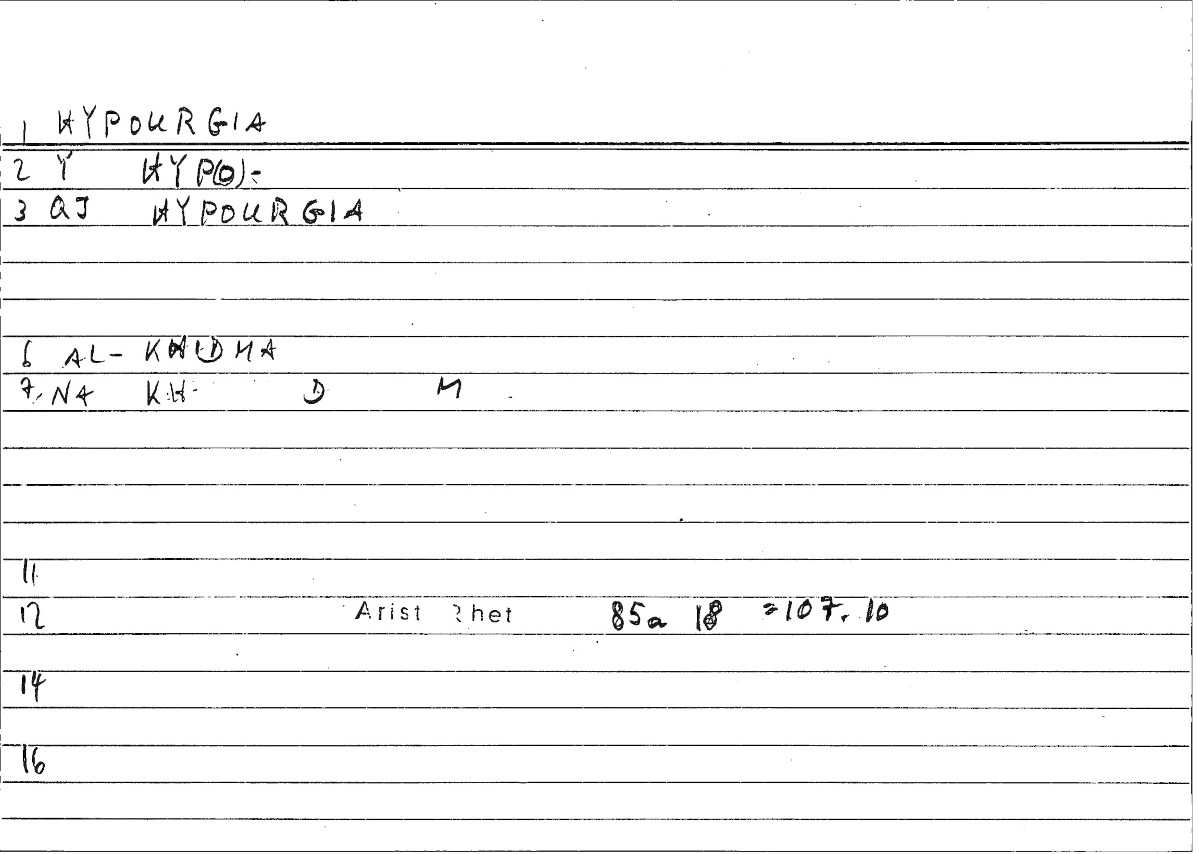 1 HYPOURGIA
2 Y HYP(O)-
3 QJ HYPOURGIA
6 AL- KHIDMA
7 NA KH D M
11
12 Arist Rhet 85a 18 =107.10
14
16